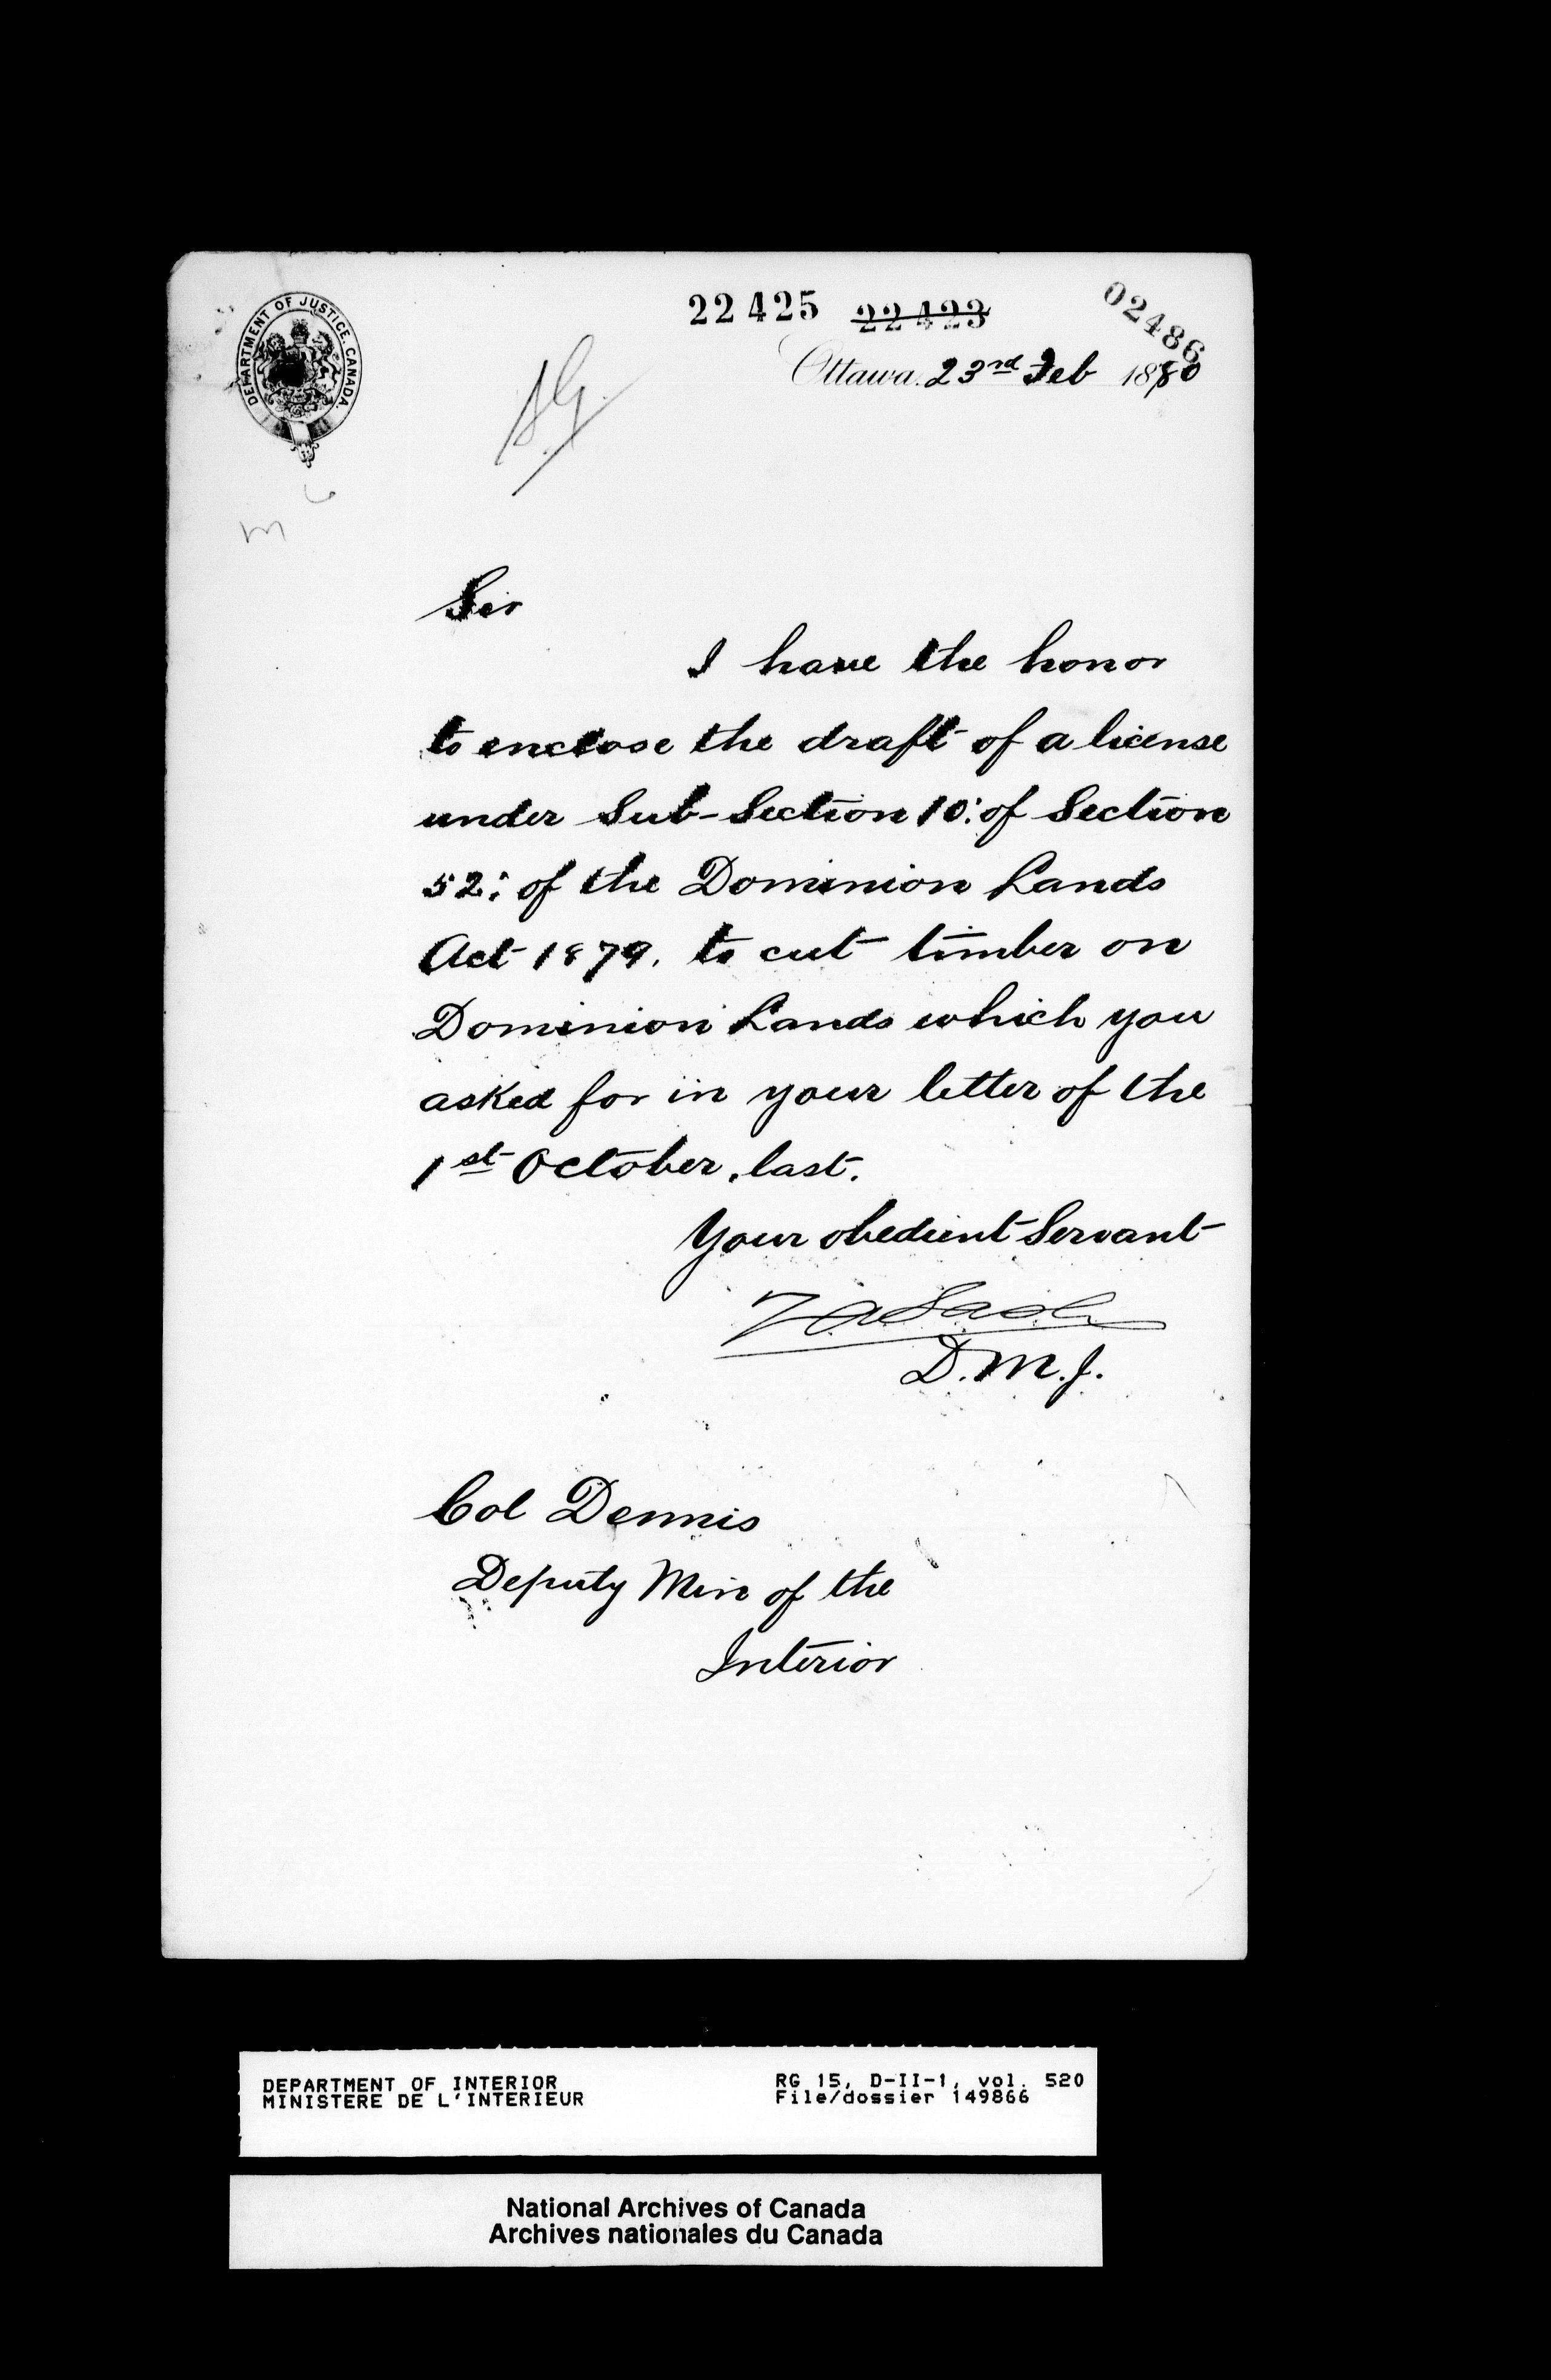 DEPARTMENT OF JUSTICE, CANADA.
22425 22423
02486
Ottawa. 23rd Feb 1880
Sir
I have the honor
to enclose the draft of a license
under Sub-Section 10: of Section
52: of the Dominion Lands
Act 1879. to cut timber on
Dominion Lands which you
asked for in your letter of the
1st October, last.
Your obedient Servant
D.M.J.
Col Dennis
Deputy Min of the
Interior
DEPARTMENT OF INTERIOR
MINISTERE DE L'INTERIEUR
RG 15, D-II-1, vol. 520
File/dossier 149866
National Archives of Canada
Archives nationales du Canada